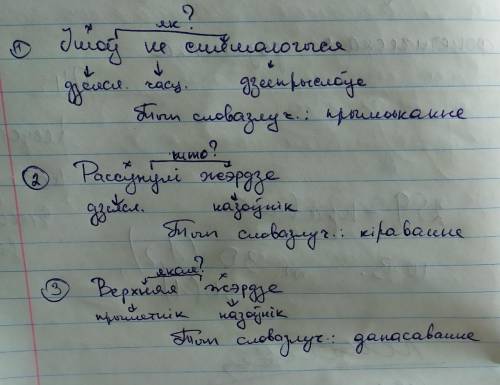 як?
1) Ішоў не спатыкаючыся
дзеясл. часц. дзеепрыслоўе
Тып словазлуч.: прымыканне
што?
2 Рассунулі жэрдзе
дзеясл. назоўнік
Тып словазлуч.: кіраванне
якое?
3 Верхняя жэрдзе
прыметнік назоўнік
Тып словазлуч.: дапасаванне